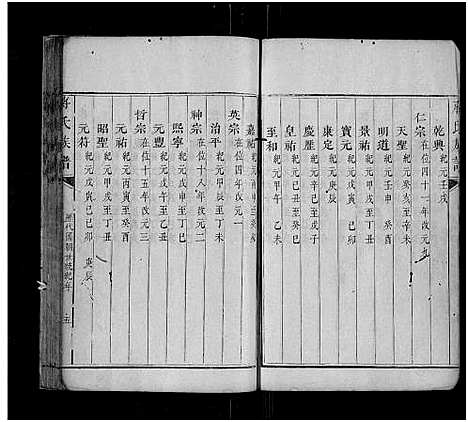 蔣氏族譜
乾興 紀元壬戌
仁宗 在位四十一年改元九
天聖 紀元癸亥至辛未
明道 紀元壬申 癸酉
景祐 紀元甲戌至丁丑
寶元 紀元戊寅 己卯
康定 紀元庚辰
慶曆 紀元辛巳至戊子
皇祐 紀元己丑至癸巳
至和 紀元甲午 乙未
嘉祐
英宗 在位四年改元一
治平 紀元甲辰至丁未
神宗 在位十八年改元二
熙寧 紀元戊申至丁巳
元豐 紀元戊午至乙丑
哲宗 在位十五年改元三
元祐 紀元丙寅至癸酉
紹聖 紀元甲戌至丁丑
元符 紀元戊寅 己卯 庚辰
氏族譜
歷代國朝世紋紀年 五